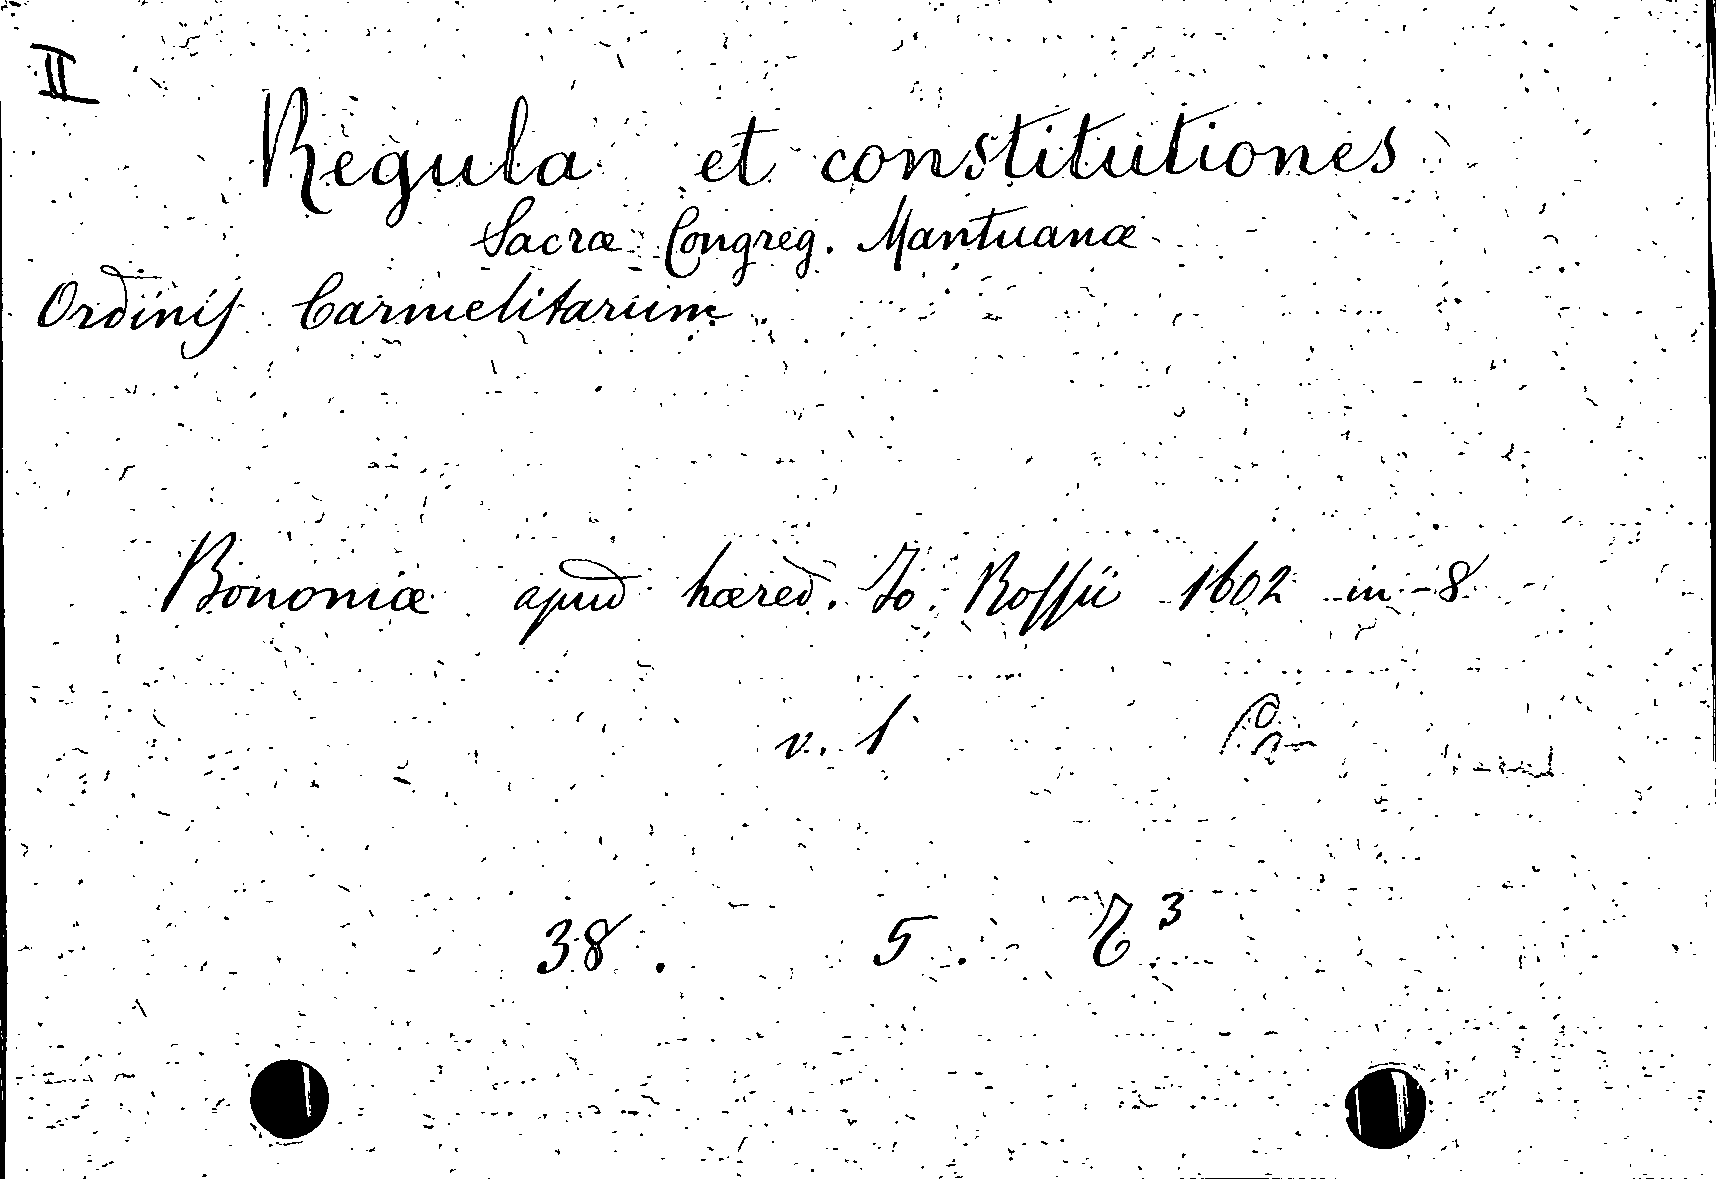 II
Regula et constitutiones
Sacræ Congreg. Mantuanæ
Ordinis Carmelitarum
Bononiæ apud hæred. Jo. Rossii 1602 in-8
v. 1
38. 5.